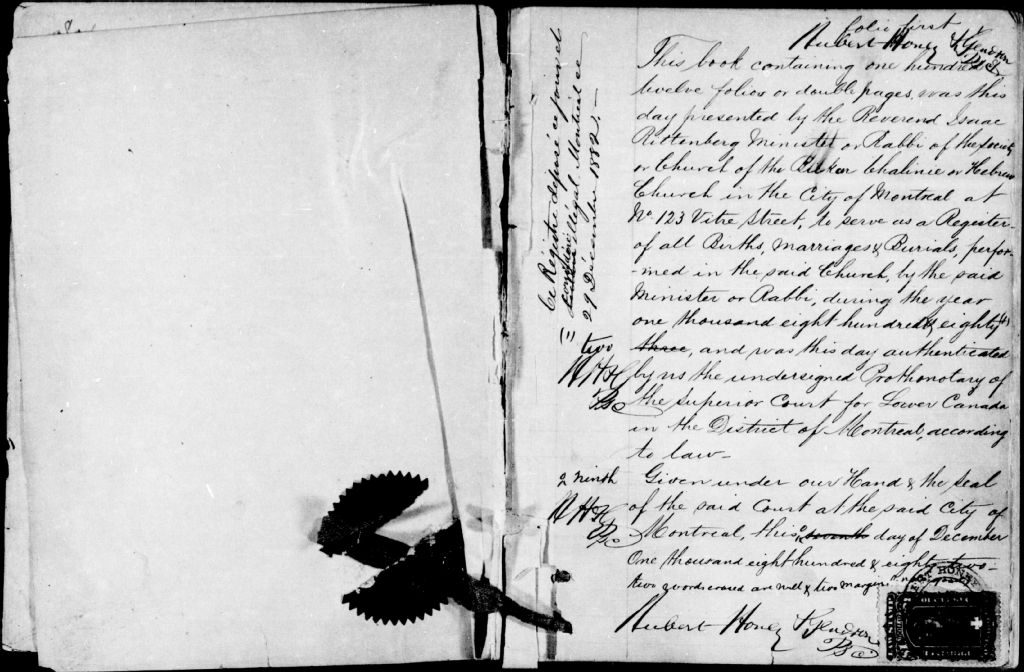 folio first
Hubert Honey & Gendron
P S C
This book containing one hundred
twelve folios or double pages, was this
day presented by the Reverend Isaac
Rittenberg Minister or Rabbi of the Society
or Church of the Chalinie or Hebrew
Church in the City of Montreal at
No. 123 Vitre Street, to serve as a Register
of all Births, Marriages & Burials, perfor-
-med in the said Church, by the said
Minister or Rabbi, during the year
one thousand eight hundred & eighty
three, and was this day authenticated
by us the undersigned Prothonotary of
the Superior Court for Lower Canada
in the District of Montreal, according
to law—
Given under our Hand & the seal
of the said Court at the said City of
Montreal, this seventh day of December
One thousand eight hundred & eighty two—
two words erased are null & two margin
Hubert Honey & Gendron
P S C
1) two
H H & G
P S C
2 ninth
H H & G
P S C
Ce Régistre déposé ce jour et
illégal. Montréal ce
29 Décembre 1882.—